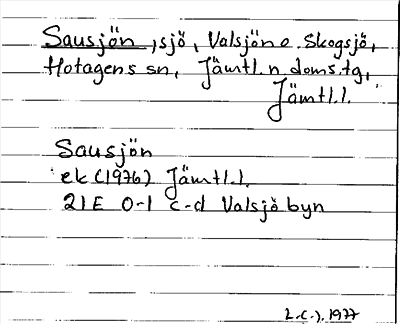 Sausjön, sjö, Valsjön o. Skogsjö,
Hotagens sn, Jämtl. n. doms.tg,
Jämtl. l.
Sausjön
ek (1976) Jämtl. l.
21E 0-1 c-d Valsjöbyn
L.C.J. 1977